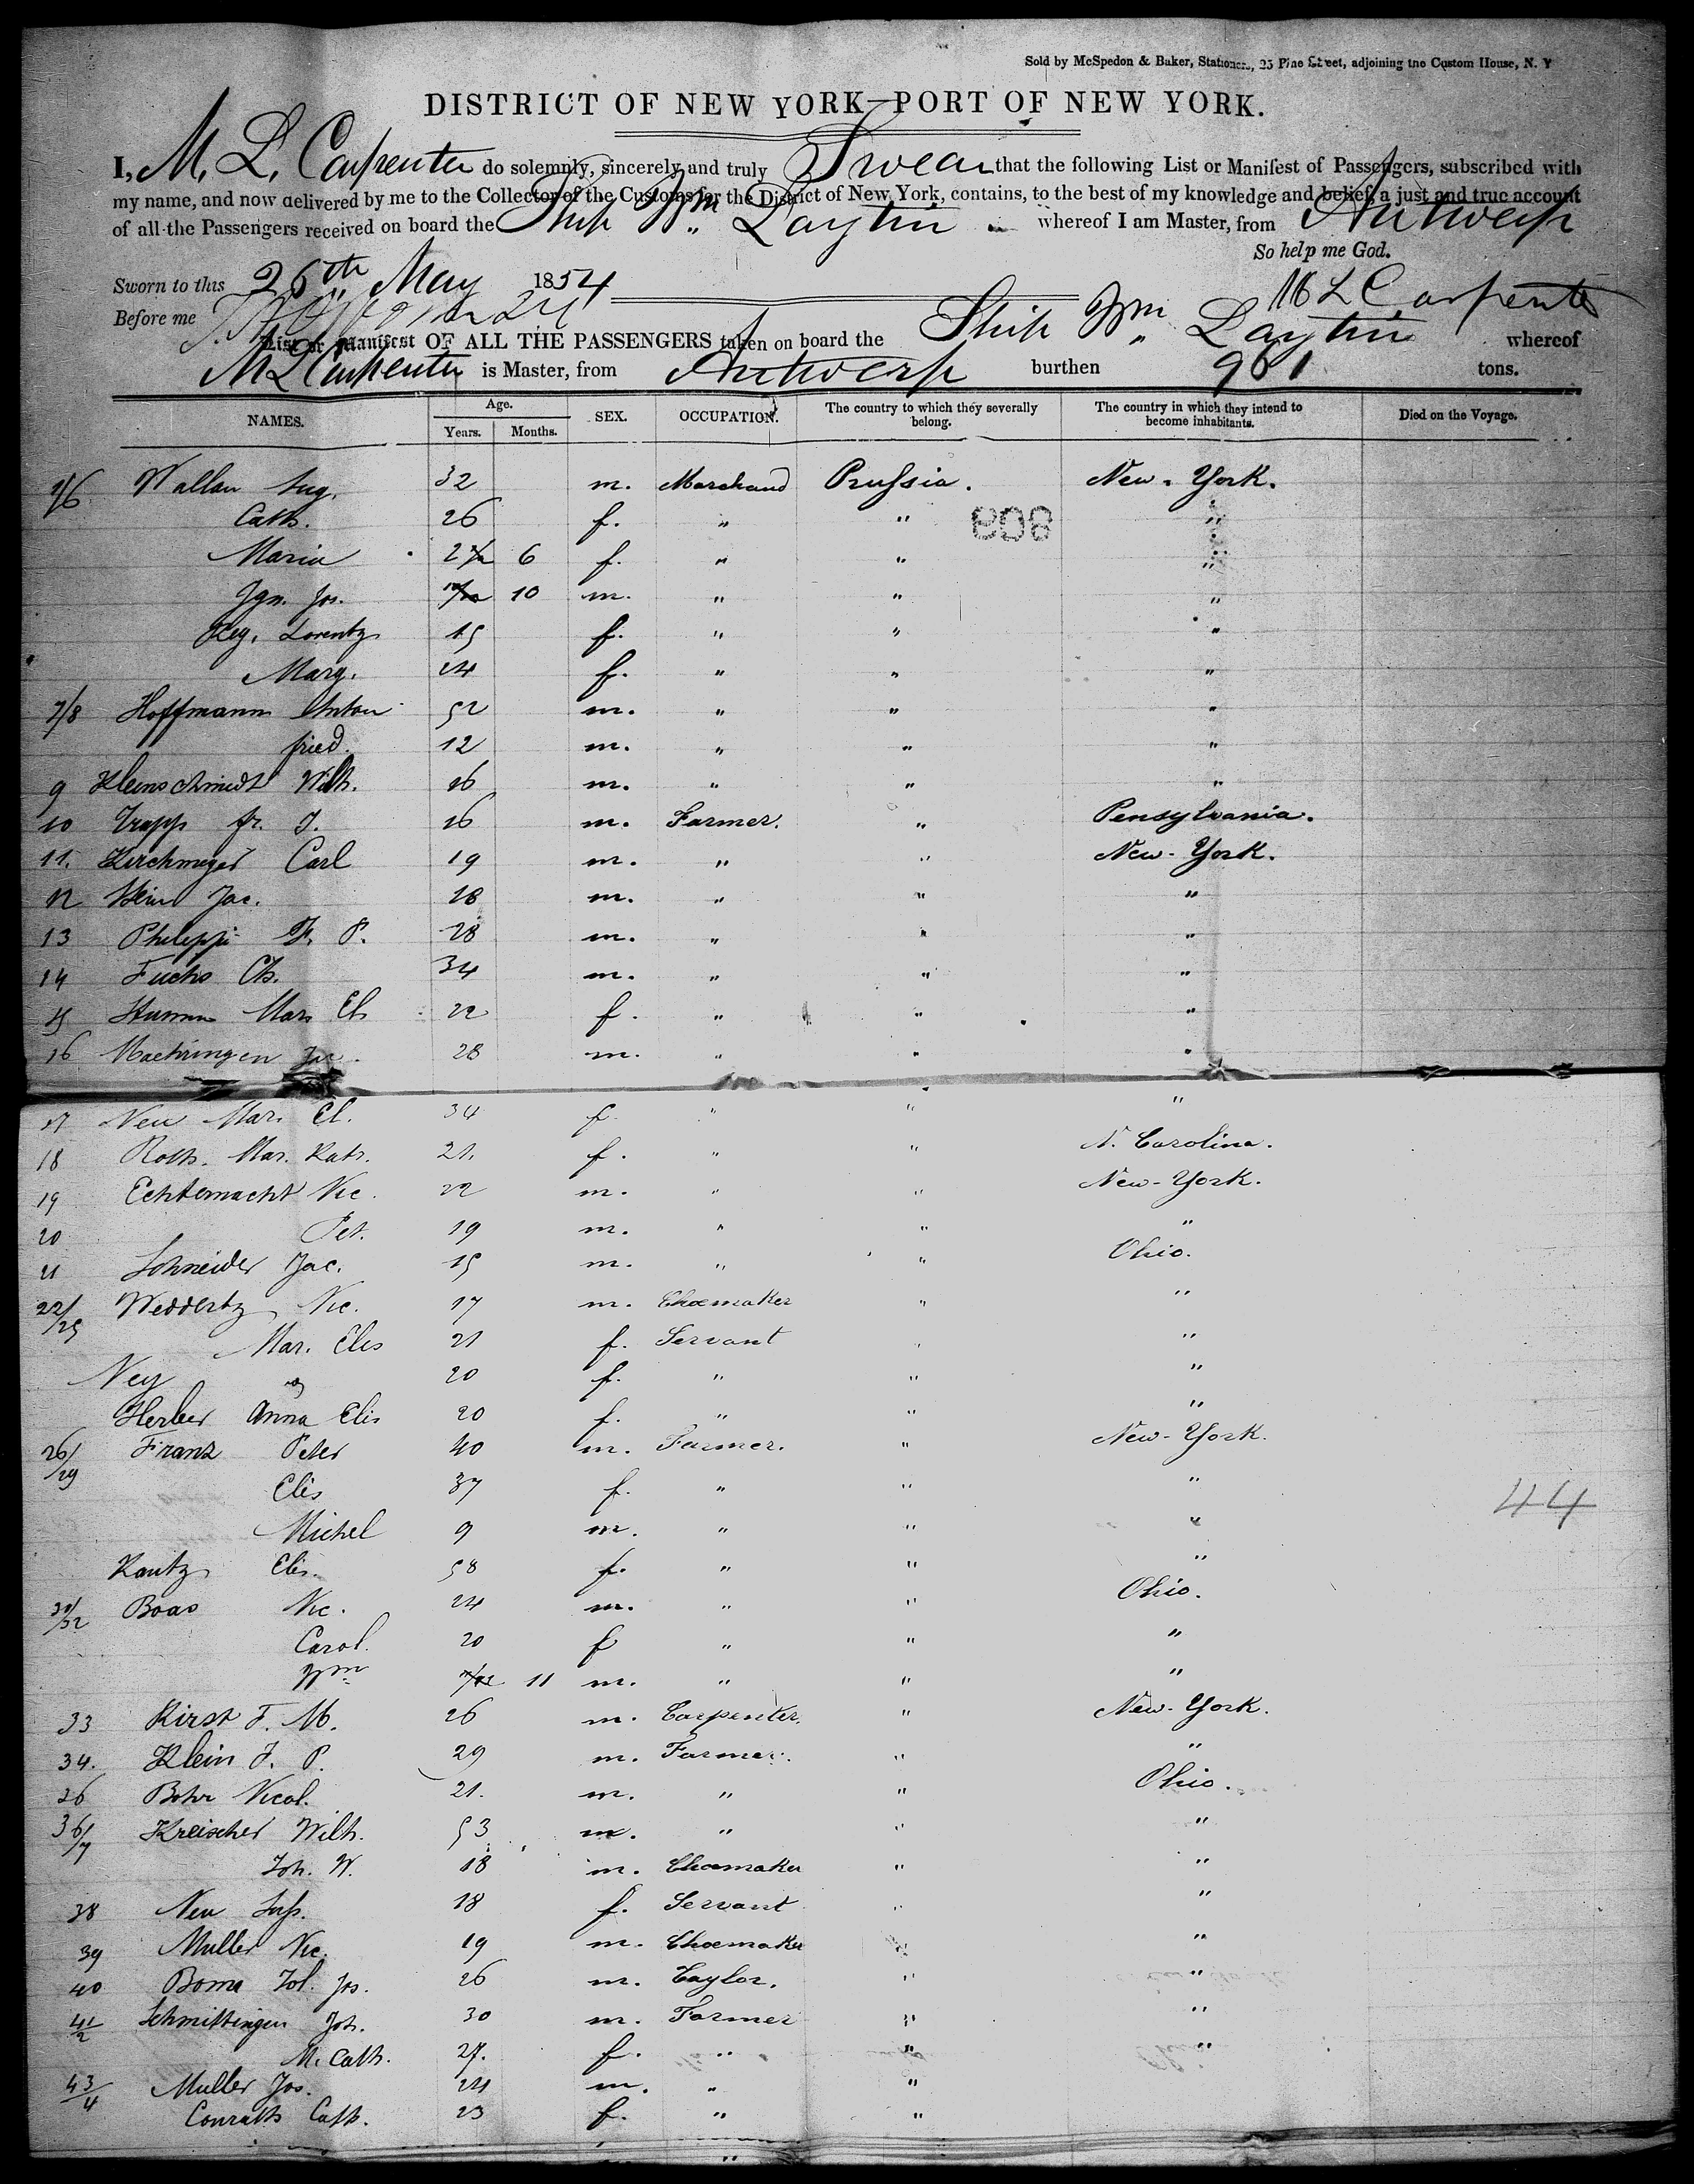 Sold by McSpedon & Baker, Stationers, 25 Pine Street, adjoining the Custom House, N. Y
DISTRICT OF NEW YORK—PORT OF NEW YORK.
I, M. L. Carpenter do solemnly, sincerely and truly Swear that the following List or Manifest of Passengers, subscribed with
my name, and now delivered by me to the Collector of the Customs for the District of New York, contains, to the best of my knowledge and belief, a just and true account
of all the Passengers received on board the Ship Wm Laytin whereof I am Master, from Antwerp
So help me God.
Sworn to this 26th May 1854
Before me
M L Carpenter
List or Manifest OF ALL THE PASSENGERS taken on board the Ship Wm Laytin whereof
M L Carpenter is Master, from Antwerp burthen 961 tons.
NAMES. Age. Years. Months. SEX. OCCUPATION. The country to which they severally belong. The country in which they intend to become inhabitants. Died on the Voyage.
1/6 Wallau Aug. 32 m. Marchand Prussia. New-York.
Cath. 26 f. " " "
808
Maria 2 6 f. " " "
Ign. Jos. 10 m. " " "
Reg. Lorentz 15 f. " " "
Marg. 24 f. " " "
7/8 Hoffmann Anton 52 m. " " "
fried. 12 m. " " "
9 Kleinschmidt Wilh. 26 m. " " "
10 Trapp fr. J. 26 m. Farmer. " Pensylvania.
11. Kirchmeyer Carl 19 m. " " New-York.
12 Klein Jac. 28 m. " " "
13 Philippi F. P. 28 m. " " "
14 Fuchs Ch. 34 m. " " "
15 Mar. El. 22 f. " " "
16 Maehringen 28 m. " " "
17 Neu Mar. El. 34 f. " " "
18 Roth. Mar. Kath. 21. f. " " N. Carolina.
19 Echternacht Nic. 22 m. " " New-York.
20 Pet. 19 m. " " "
21 Schneider Jac. 15 m. " " Ohio.
22/25 Weddertz Nic. 17 m. Choemaker " "
Mar. Elis 21 f. Servant " "
Ney " 20 f. " " "
Herber Anna Elis 20 f. " " "
26/29 Franz Peter 40 m. Farmer. " New-York.
Elis 37 f. " " "
44
Michel 9 m. " " "
Kautz Elis. 58 f. " " "
30/32 Boas Nic. 24 m. " " Ohio.
Carol. 20 f " " "
Wm 11 m. " " "
33 Kirst F. M. 26 m. Carpenter. " New-York.
34. Klein F. P. 29 m. Farmer. " "
36 Bohr Nicol. 21. m. " " Ohio.
36/7 Kreischer Wilh. 53 m. " " "
Joh. W. 18 m. Choemaker " "
38 Neu 18 f. Servant " "
39 Muller Nic. 19 m. Choemaker " "
40 Boma Jos. 26 m. Taylor. " "
41/2 Schmittingen Joh. 30 m. Farmer " "
M. Cath. 27. f. " " "
43/4 Muller Jos. 24 m. " "
Conrath Cath. 23 f. " "